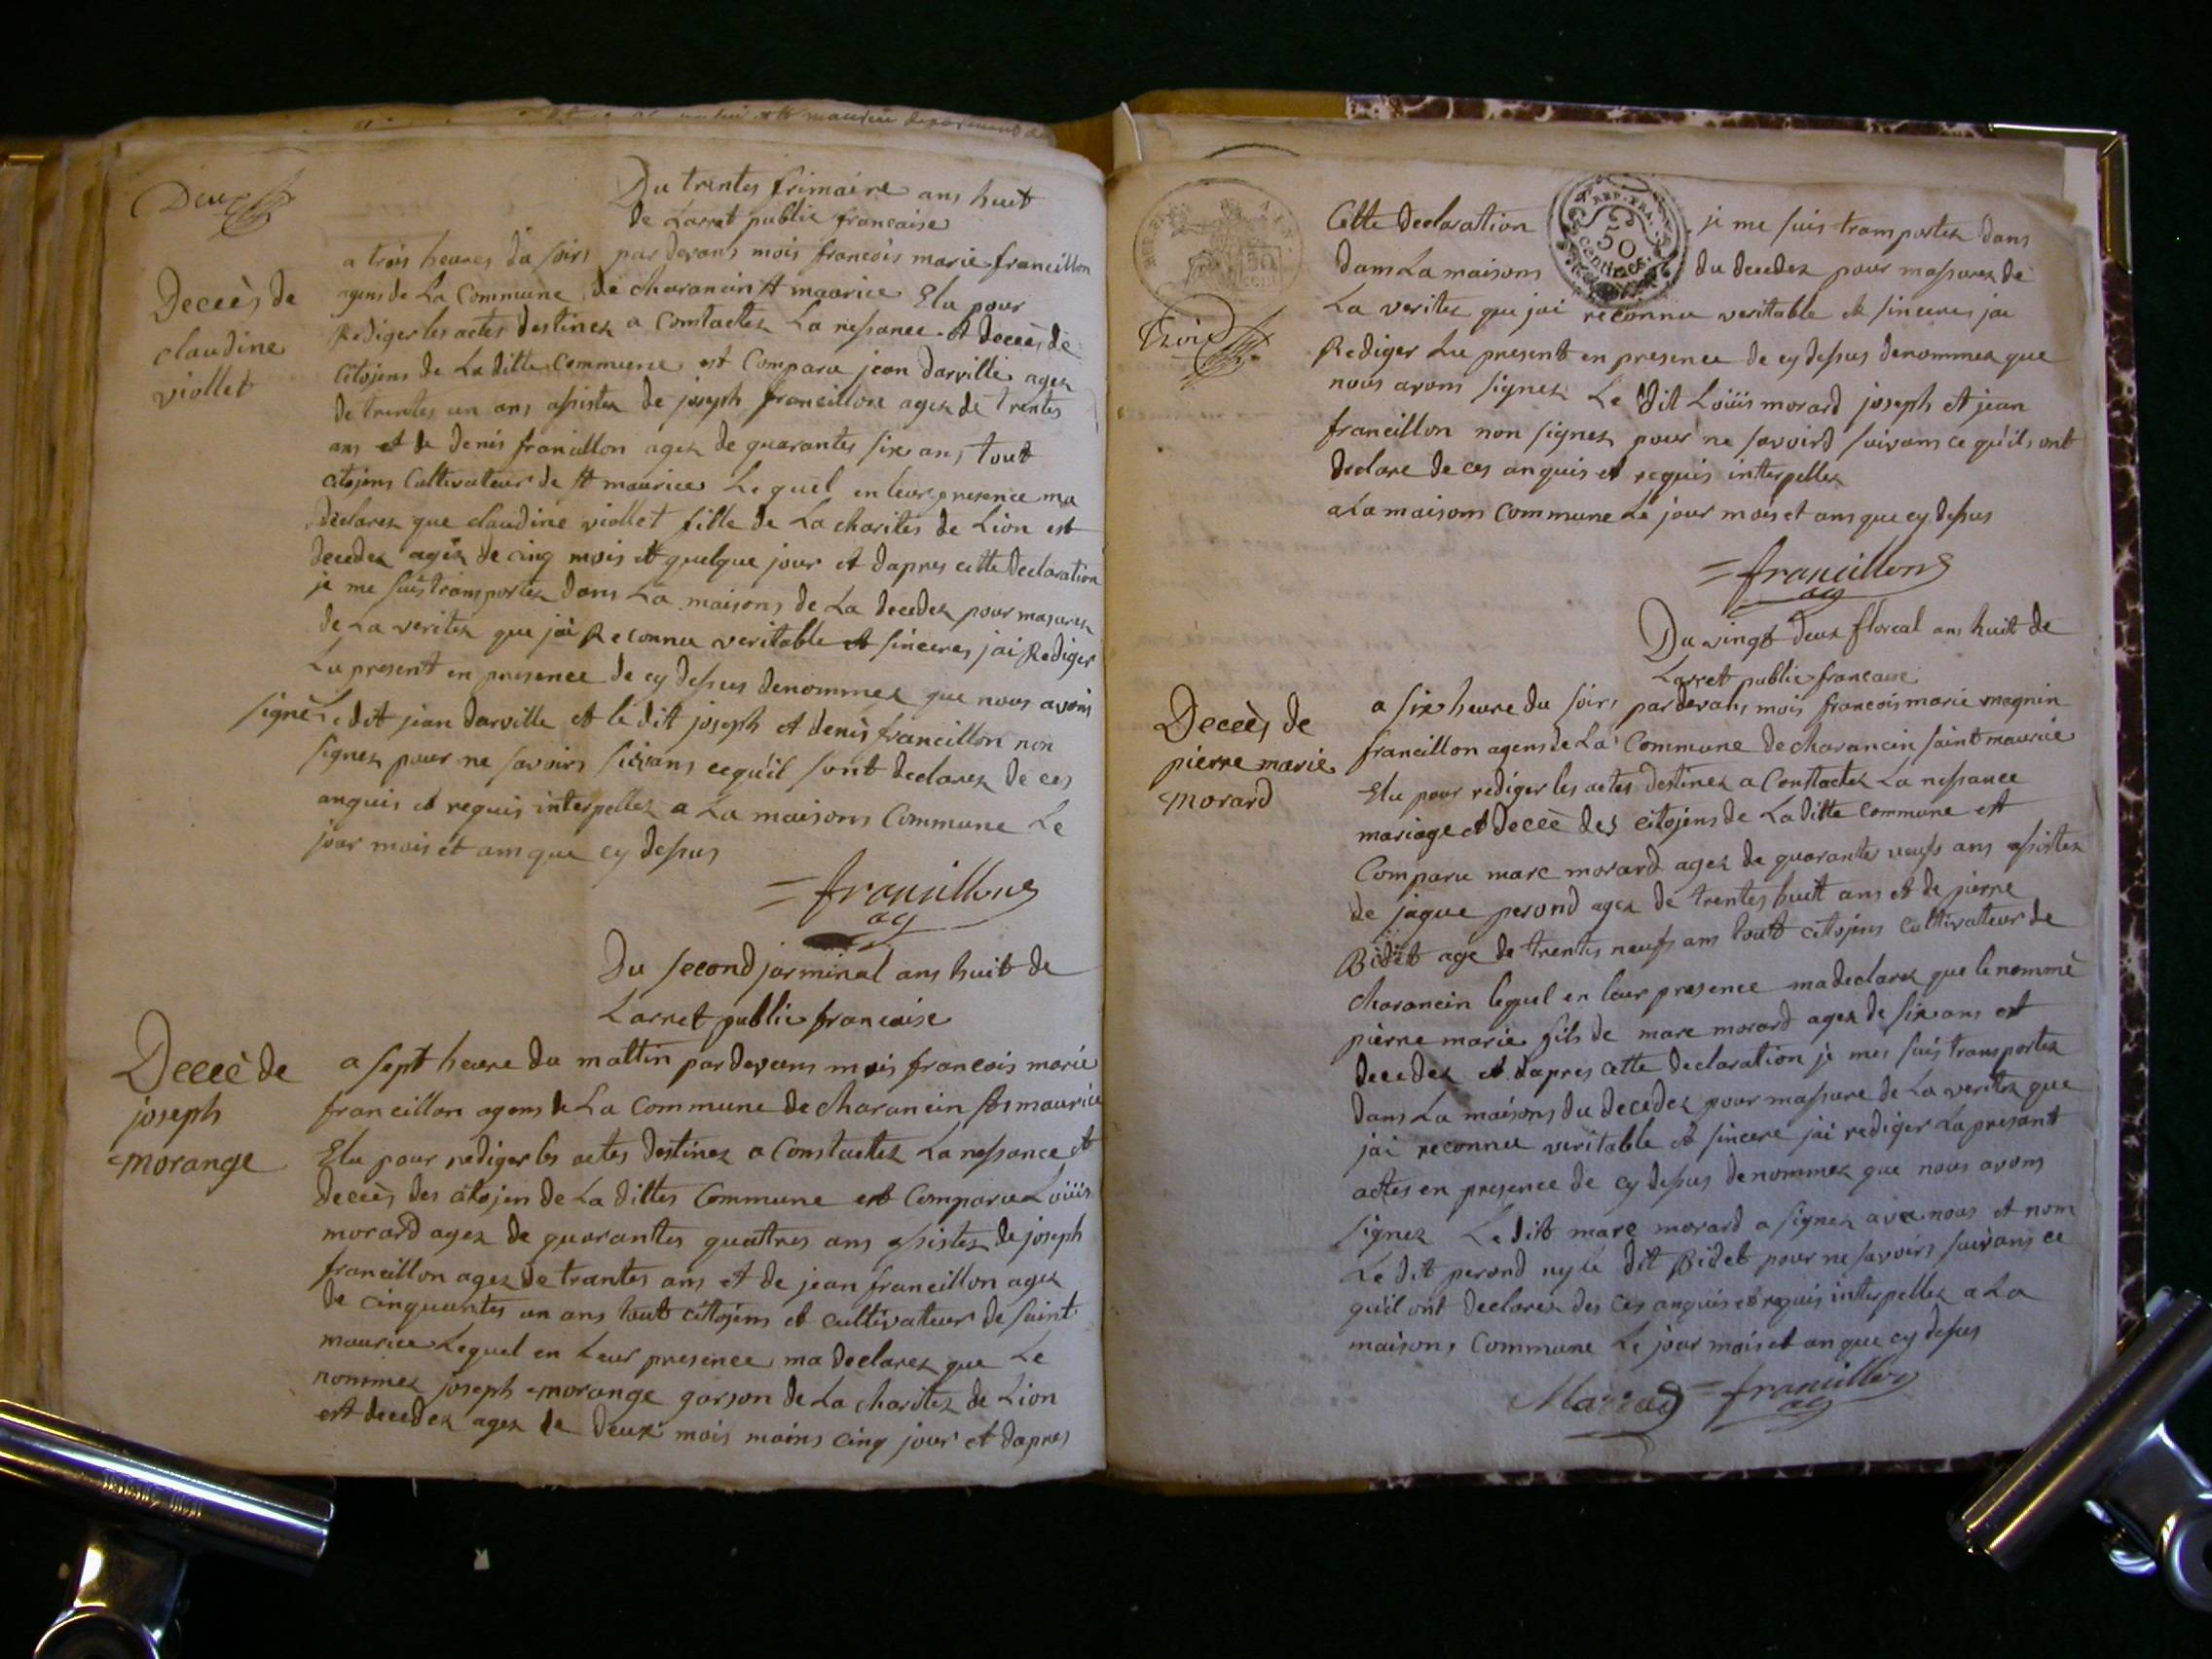 Deux
Du trentes frimaire ans huit
de Larret public francaise
Deceès de
claudine
viollet
a trois heures du soirs pardevans mois francois marie francillon
agens de La Commune de charancin st maurice Elu pour
Rediger les actes destinez a Constactez La nessance et deceès de
Citojens de La ditte Commune est Comparu jean darville agez
de trentes un ans assistez de joseph francillon agez de trentes
ans et de denis francillon agez de quarantes six ans tout
citojens Cultivateur de st maurice Lequel en leur presence ma
declarez que claudine viollet fille de La charites de Lion est
decedez agéz de cinq mois et quelque jour et dapres cette declaration
je me suis transportez dans La maisons de La decedez pour masurez
de La veritez que jai Reconnu veritable et sinceres jai Rediger
Lu present en presence de cy dessus denommez que nous avons
signè Le dit jean darville et le dit joseph et denis francillon non
signez pour ne savoirs suivans cequ'il sont declarez de ces
anquis et requis interpellez a La maisons Commune Le
jour mois et ans que cy dessus
= francillons
ag
Du second jarminal ans huit de
Larret public francaise
Deceè de
joseph
morange
a sept heure du mattin pardevans mois francois marie
francillon agens de La Commune de charancin st maurice
Elu pour rediger les actes destinez a Constactez La nessance et
deceès des citojen de La dittes Commune est Comparu Loüis
morard agez de quarantes quattres ans assistez de joseph
francillon agez de trantes ans et de jean francillon agez
de cinquantes un ans tout citojens et cultivateur de saint
maurice Lequel en Leur presence ma declarez que Le
nommez joseph morange garson de La charitez de Lion
est decedez agez de deux mois moins cinq jour et dapres
REP. FRA.
50
centimes
Trois
Cette declaration je me suis transportez dans
dans La maisons du decedez pour massurez de
La veritez que jai reconnu veritable et sinceres jai
Rediger Lu present en presence de cy dessus denommez que
nous avons signez Le dit Loüis morard joseph et jean
francillon non signez pour ne savoird suivans ce qu'ils ont
declare de ces anquis et requis interpellez
a La maisons Commune Le jour mois et ans que cy dessus
= francillons
ag
Du vingt deux floreal ans huit de
Larret public francaise
Deceès de
pierre marie
morard
a six heure du soirs pardevans mois francois marie magnin
francillon agens de La Commune de charancin saint maurice
Elu pour rediger les actes destinez a Constactez La nessance
mariage et deceè des citojens de La ditte Commune est
Comparu marc morard agez de quarantes neufs ans assistez
de jaque perond agez de trentes huit ans et de pierre
Bidet age de trentes neufs ans tout citojens cultivatteur de
charancin lequel en leur presence ma declarez que le nommè
pierre marie fils de marc morard agez de six ans est
decedez et dapres cette declaration je mes suis transportez
dans La maisons du decedez pour massure de La veritez que
jai reconnu veritable et sincere jai rediger La presant
actes en presence de cy dessus denommez que nous avons
signez Le dit marc morard a signez avec nous et nom
Le dit perond ny le dit Bidet pour ne savoirs suivans ce
qu'il ont declarez des ces anquis et requis interpellez a La
maisons Commune Le jour mois et an que cy dessus
= francillon
ag